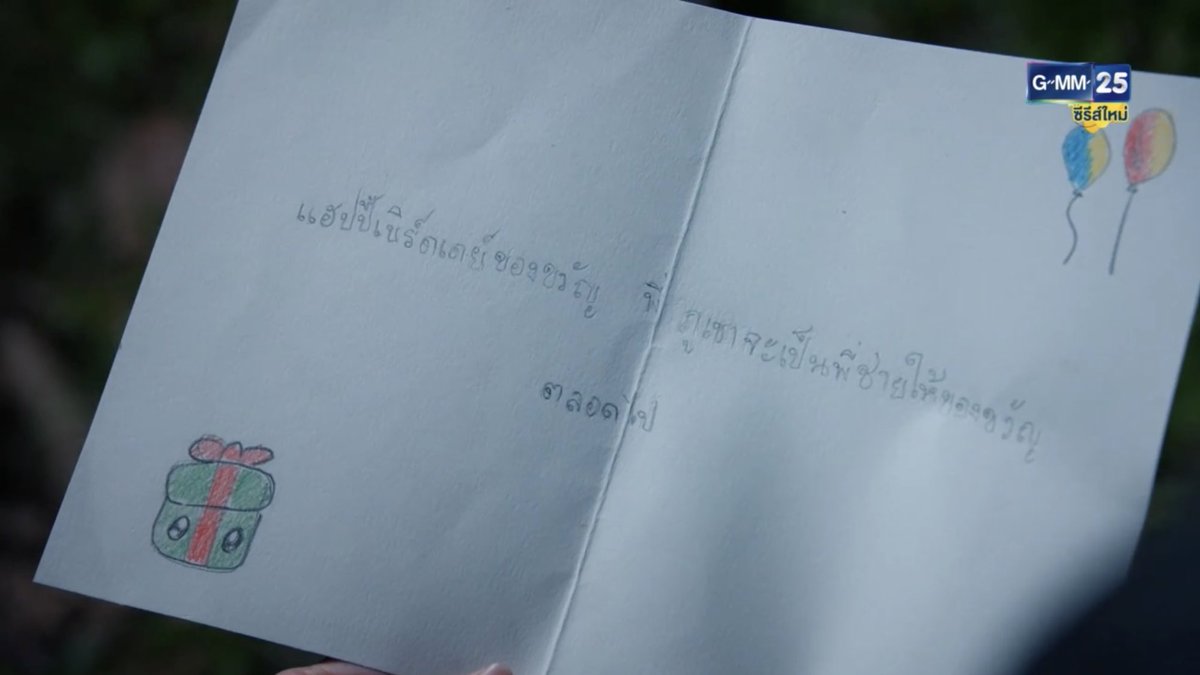 G-MM 25
ซีรีส์ใหม่
แฮปปี้เบิร์ดเดย์ของขวัญ พี่ภูเขาจะเป็นพี่ชายให้ของขวัญ
ตลอดไป